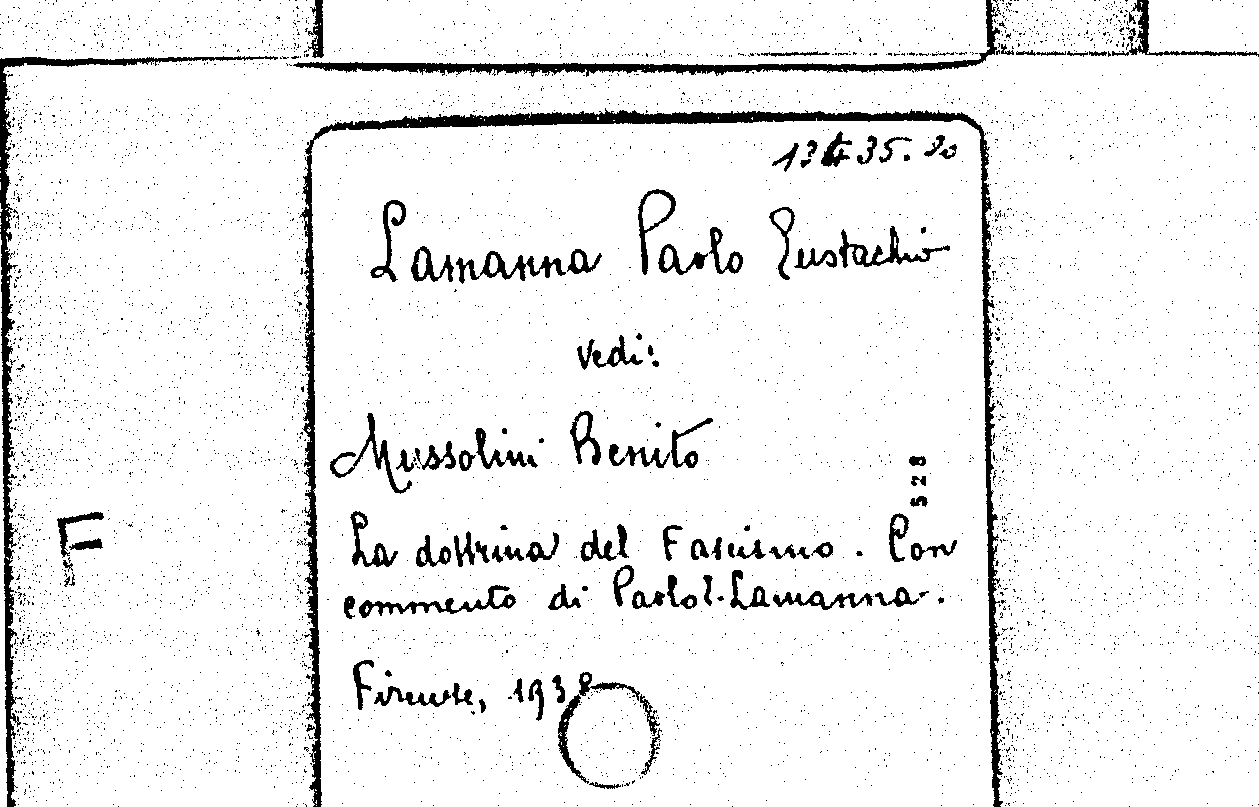 Lamanna Paolo Eustachio
vedi:
Mussolini Benito
528
F
La dottrina del Fascismo. Con
commento di Paolo E. Lamanna.
Firenze, 1938